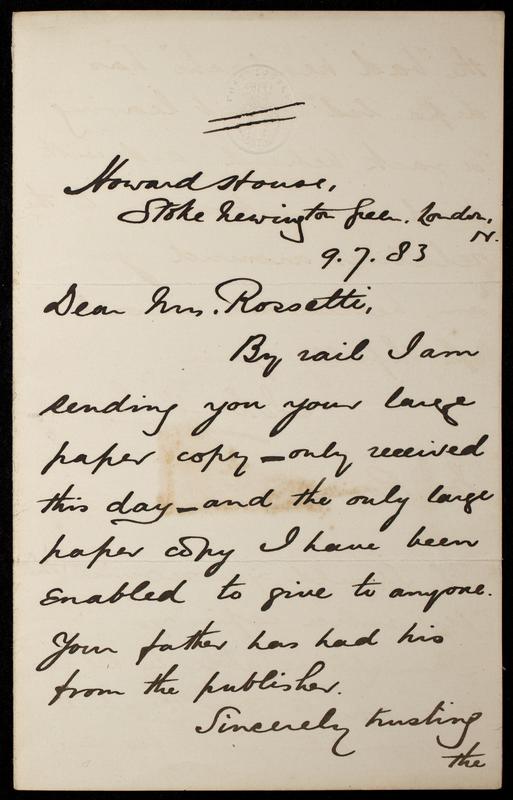 Howard House,
Stoke Newington Green. London,
N.
9.7.83
Dear Mrs. Rossetti,
By rail I am
sending you your large
paper copy—only received
this day—and the only large
paper copy I have been
enabled to give to anyone.
Your father has had his
from the publisher.
Sincerely trusting
the